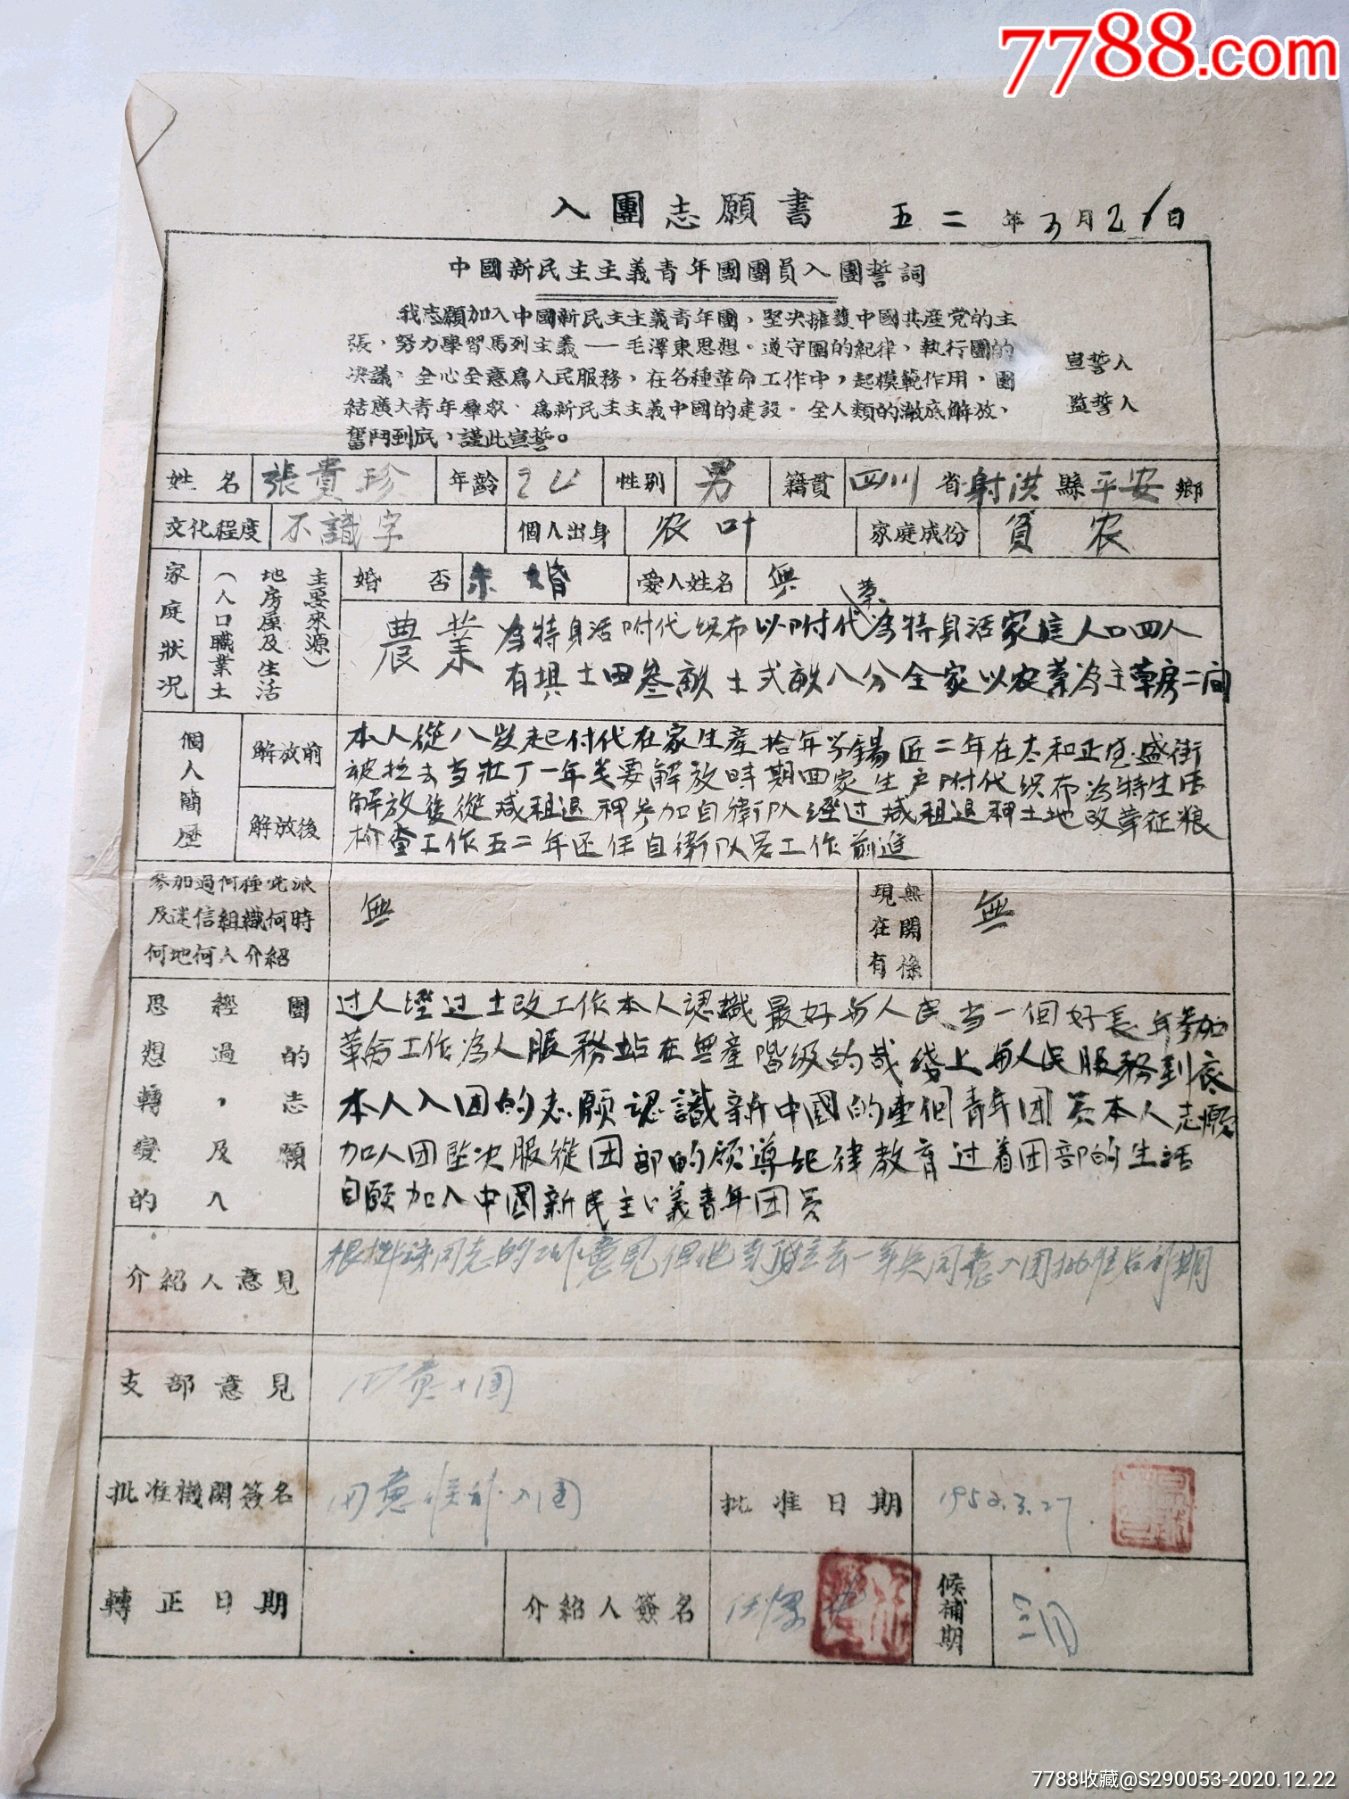 7788.com
入團志願書 五二年3月21日
中國新民主主義青年團團員入團誓詞
我志願加入中國新民主主義青年團，堅決擁護中國共產党的主
張，努力學習馬列主義——毛澤東思想。遵守團的紀律，執行團的
决議，全心全意為人民服務，在各種革命工作中，起模範作用，團
結廣大青年羣衆，為新民主主義中國的建設，全人類的澈底解放，
奮鬥到底，謹此宣誓。
宣誓人
监誓人
姓名 張貴珍 年齡 24 性别 男 籍貫 四川省射洪縣平安鄉
文化程度 不識字 個人出身 农叶 家庭成份 貧农
家庭狀况
（人口職業土地房屋及生活主要來源）
婚否 未婚 愛人姓名 無
農業 為特身活附代织布以附代為特身活家庭人口四人
業
有填土田叁畝土弍畝八分全家以农業為主草房二间
個人簡歷
解放前
解放後
本人從八岁起付代在家生產拾年学錫匠二年在太和正 盛街
被拉去当壮丁一年 要解放時期回家生产附代织布為特生活
解放後從减租退押参加自衛队經过减租退押土地改革征粮
检查工作五二年还任自衛队员工作前進
参加过何種党派
及迷信組織何時
何地何人介紹
無
現在有無関係
無
思想轉變的經過，及入團的志願
过人經过土改工作本人認識最好為人民当一個好長年参加
革命工作為人服務站在無產階级的战线上為人民服務到底
本人入团的志願認識新中國的 個青年团 本人志願
加入团坚决服從团部的领導纪律教育过着团部的生活
自願加入中國新民主主義青年团员
介紹人意見
同志的 意見但他 一年兵同意入团批准后
支部意見
意入團
批准機関簽名 同意候補入團 批准日期 1952.3.27
轉正日期 介紹人簽名 候補期 三月
7788收藏@S290053-2020.12.22